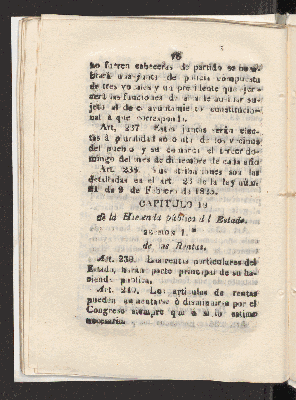 75
no fueren cabeceras de partido se nom-
brará una junta de policía compuesta
de tres vocales y un presidente que ejer-
cerá las funciones de alcalde auxiliar suje-
jeto al de el ayuntamiento constitucio-
nal a que corresponda.
Art. 237 Estas juntas serán elec-
tas á pluralidad
del pueblo y se
mingo del mes de diciembre de cada año
Art. 238. Sus atribuciones son las
detalladas en el art. 23 de la ley núm.
de 9 de Febrero de 1825.
CAPITULO 19
de la Hacienda pública del Estado.
SECCION 1.ª
de las Rentas.
Art. 239. Las rentas particulares del
Estado, harán parte principal de su ha-
cienda pública.
Art. 240. Los artículos de rentas
pueden aumentarse ó disminuirse por el
Congreso siempre que así lo estime
necesario.